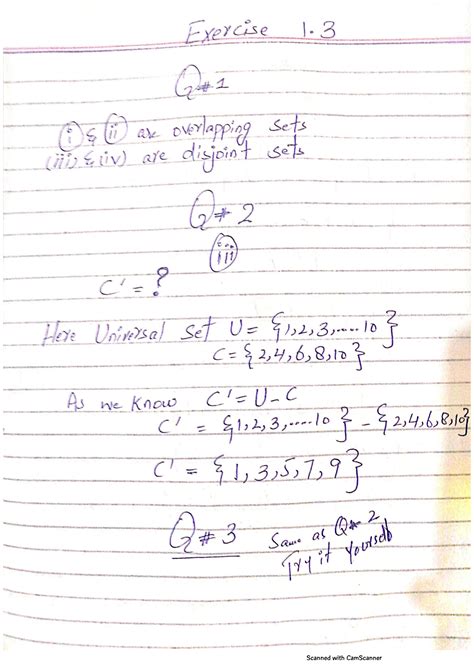 Exercise 1.3
Q#1
(i) & (ii) are overlapping sets
(iii) & (iv) are disjoint sets
Q#2
(iii)
C' = ?
Here Universal set U = {1,2,3,.....10}
C = {2,4,6,8,10}
As we know C' = U - C
C' = {1,2,3,....10} - {2,4,6,8,10}
C' = {1,3,5,7,9}
Q#3 Same as Q#2
Try it yourself
Scanned with CamScanner